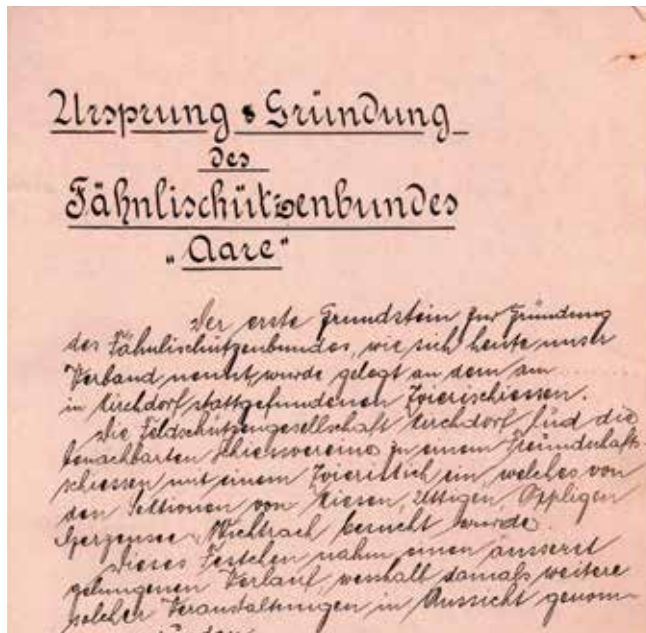 Ursprung & Gründung
des
Fähnlischützenbundes
„Aare“
Der erste Grundstein zur Gründung
des Fähnlischützenbundes, wie sich heute unser
Verband nennt, wurde gelegt an dem am
in Kirchdorf stattgefundenen Zvierischiessen.
Die Feldschützengesellschaft Kirchdorf, lud die
benachbarten Schiessvereine zu einem Freundschafts-
schiessen mit einem Zvieristich ein, welches von
den Sektionen von Kiesen, Uttigen, Oppligen
Gerzensee & Wichtrach besucht wurde.
Dieses Festchen nahm einen äusserst
gelungenen Verlauf, weshalb damals weitere
solcher Veranstaltungen in Aussicht genom-